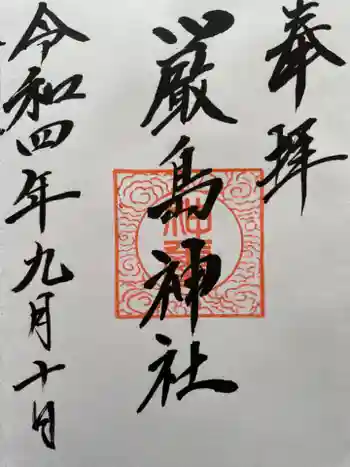 奉拝
厳島神社
令和四年九月十日